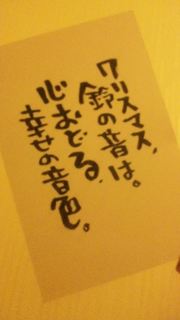 クリスマス、
鈴の音は。
心おどる、
幸せの音色。